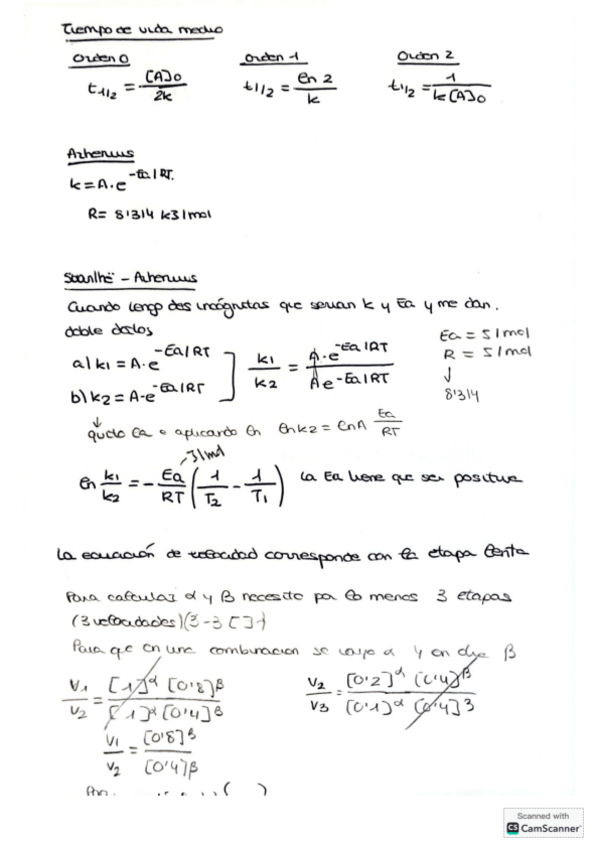 Tiempo de vida medio
Orden 0 Orden 1 Orden 2
t1/2 = [A]0 / 2k t1/2 = ln 2 / k t1/2 = 1 / k[A]0
Arhenius
k = A·e^-Ea/RT.
R = 8'314 kJ/mol
- Arhenius
Cuando tengo dos incógnitas que serian k y Ea y me dan.
doble datos
a) k1 = A·e^-Ea/RT
b) k2 = A·e^-Ea/RT
k1 / k2 = A·e^-Ea/RT / A e^-Ea/RT
Ea = J/mol
R = J/mol
↓
8'314
↓
quito Ea e aplicando ln ln k2 = ln A Ea / RT
-J/mol
ln k1 / k2 = - Ea / RT (1 / T2 - 1 / T1) la Ea tiene que ser positiva
La ecuación de velocidad corresponde con la etapa lenta
Para calcular α y β necesito por lo menos 3 etapas
(3 velocidades)(3-3 [ ])
Para que en una combinacion se vaya α y en otra β
V1 / V2 = [1]^α [0'8]^β / [1]^α [0'4]^β V2 / V3 = [0'2]^α [0'4]^β / [0'1]^α [0'4]^β
V1 / V2 = [0'8]^β / [0'4]^β
Scanned with
CS CamScanner